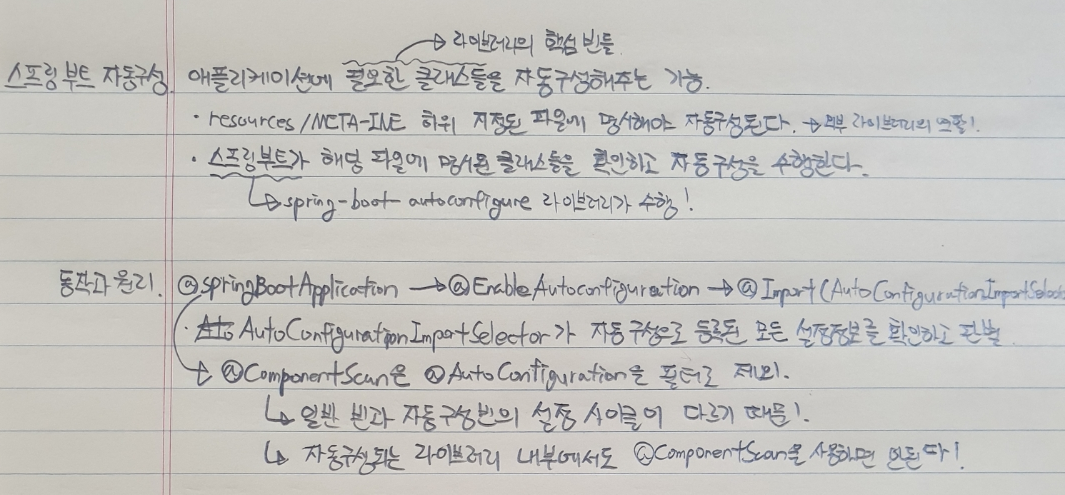 → 라이브러리의 핵심 빈들
스프링부트 자동구성. 애플리케이션에 필요한 클래스들을 자동구성해주는 기능.
· resources/META-INF 하위 지정된 파일에 명시해야 자동구성된다. → 외부 라이브러리의 역할!
· 스프링부트가 해당 파일에 명시된 클래스들을 확인하고 자동구성을 수행한다.
↳ spring-boot-autoconfigure 라이브러리가 수행!
동작과 원리. @springBootApplication → @EnableAutoconfiguration → @Import(AutoConfigurationImportSelecto
· AutoConfigurationImportSelector가 자동구성으로 등록된 모든 설정정보를 확인하고 판별
↳ @ComponentScan은 @AutoConfiguration을 필터로 제외.
↳ 일반 빈과 자동구성빈의 설정 사이클이 다르기 때문!
↳ 자동구성되는 라이브러리 내부에서도 @ComponentScan을 사용하면 안된다!